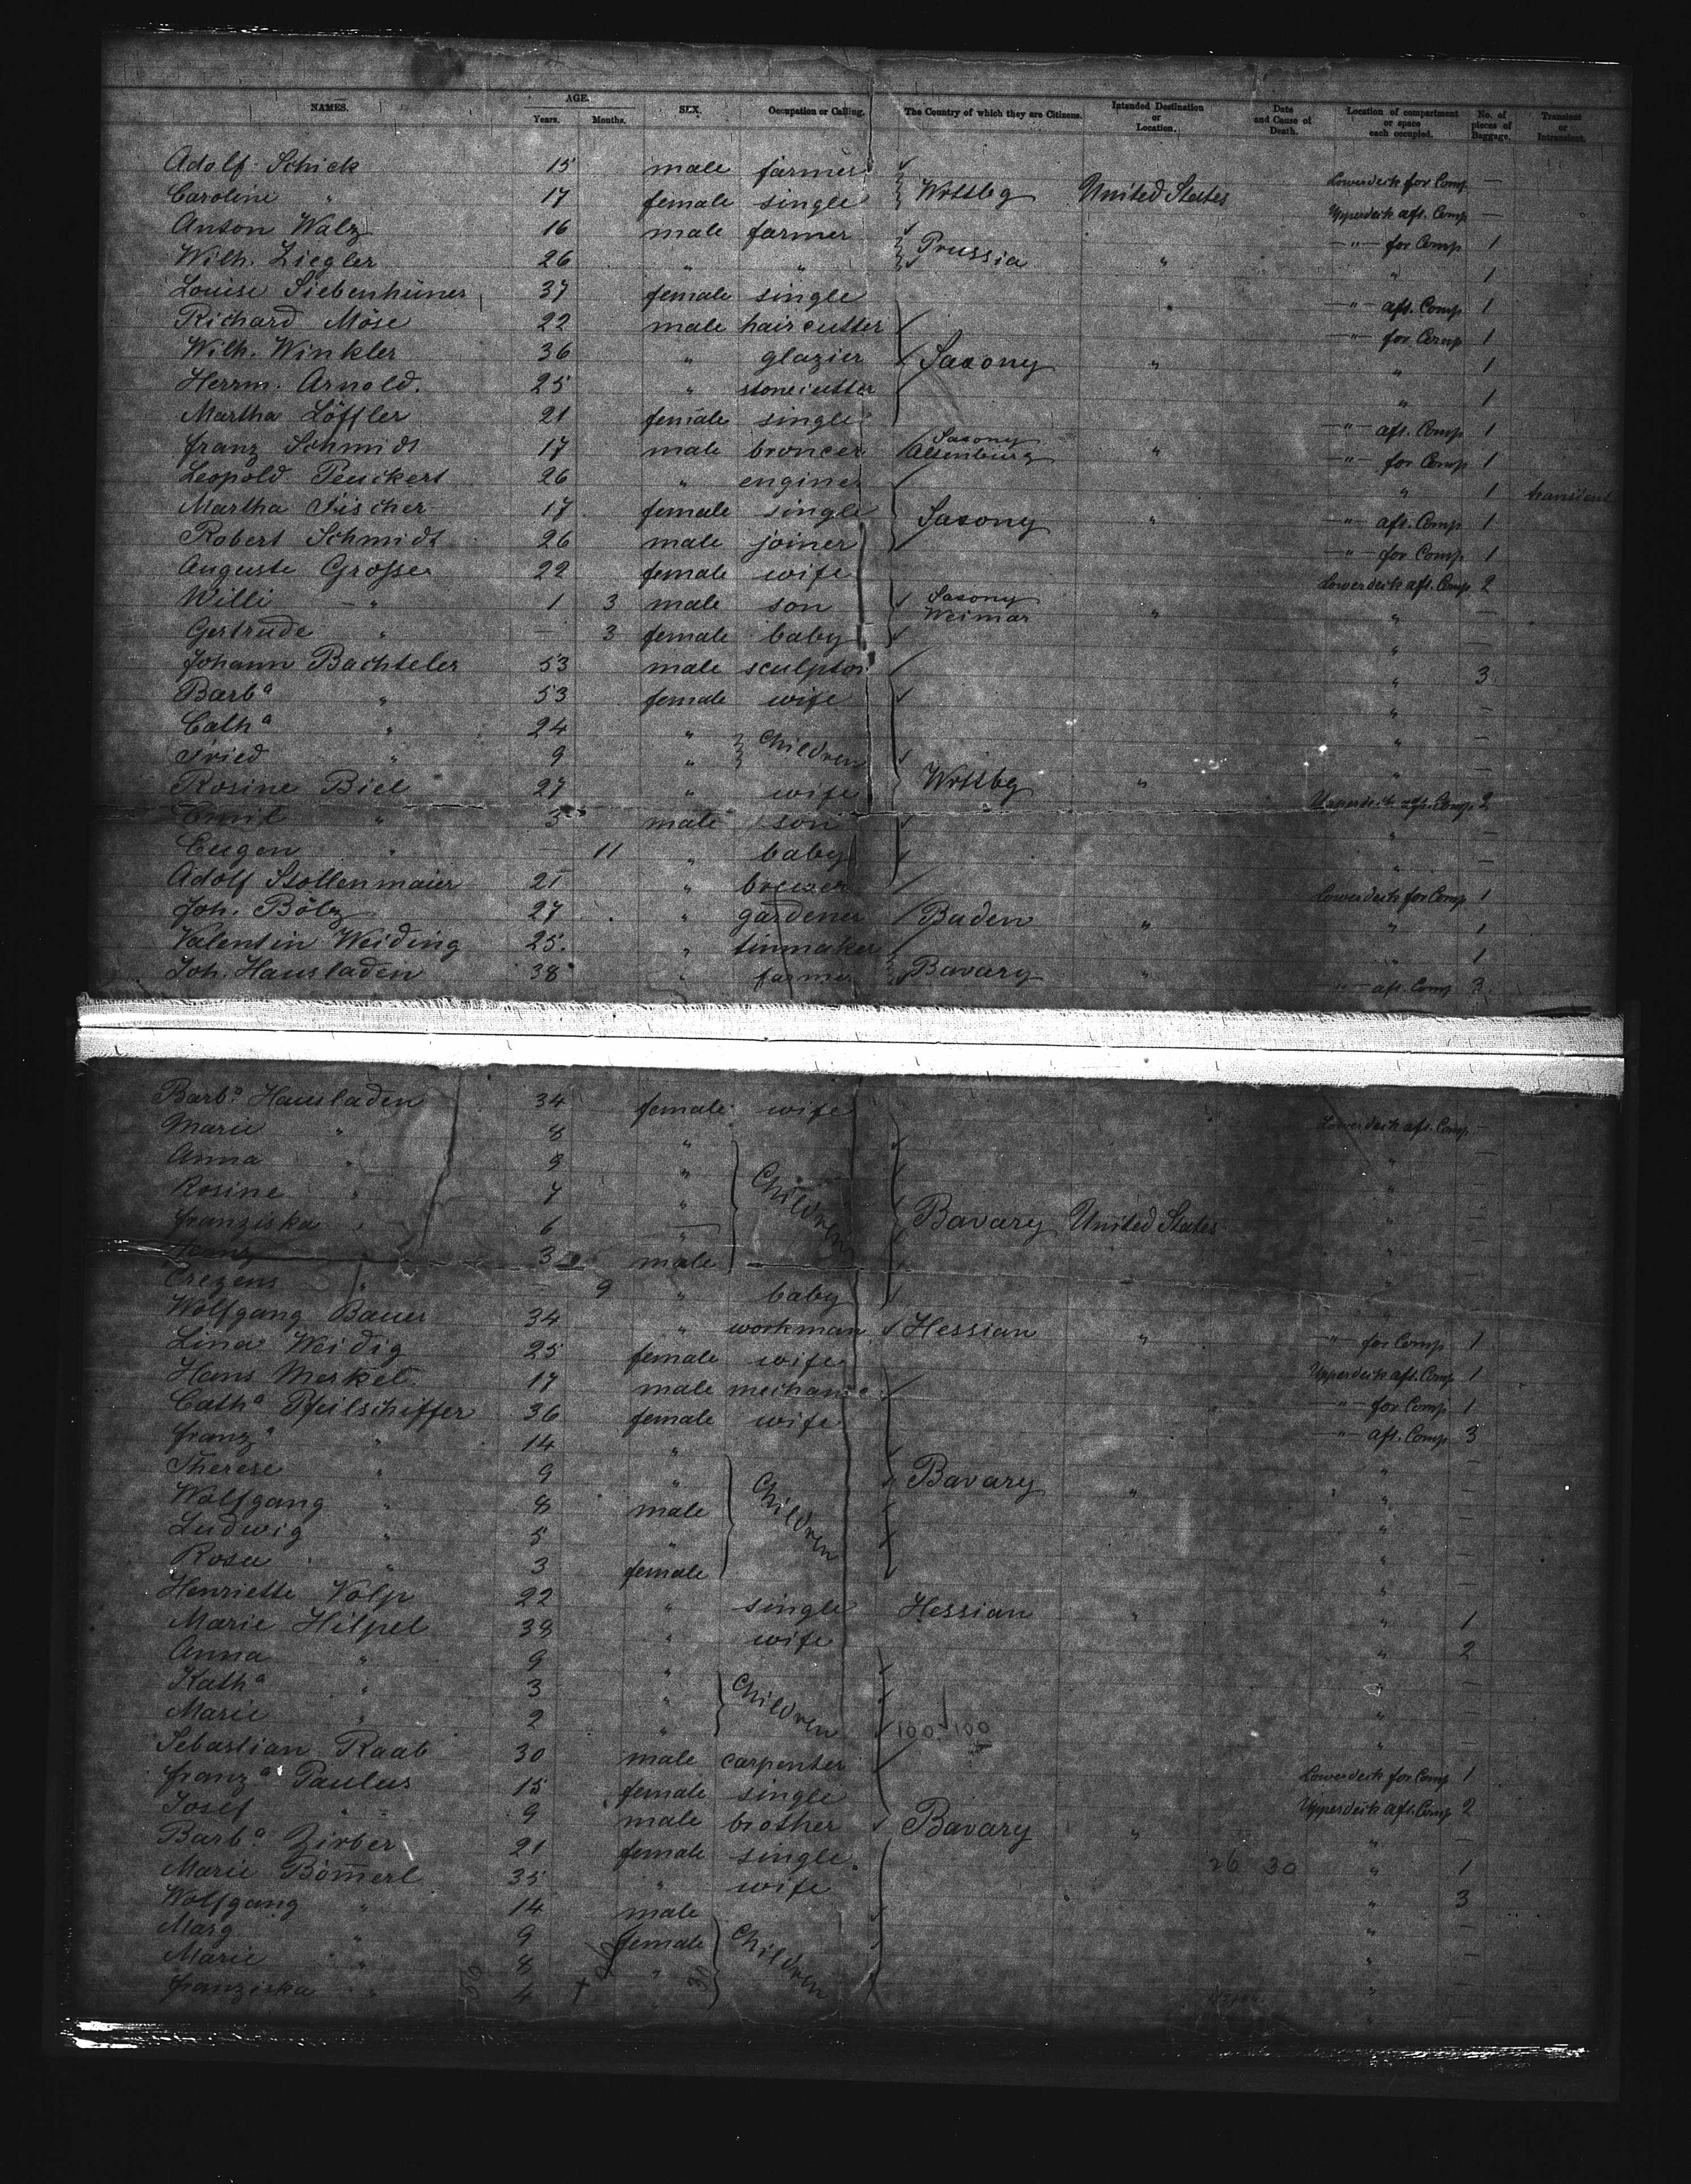 NAMES. AGE. Years. Months. SEX. Occupation or Calling. The Country of which they are Citizens. Intended Destination or Location. Date and Cause of Death. Location of compartment or space each occupied. No. of pieces of Baggage. Transient or Intransient.
Adolf Schick 15 male farmer Lowerdeck for Comp. —
Caroline " 17 female single Wrttbg United States Upperdeck aft. Comp —
Anton Walz 16 male farmer —"— for Comp 1
Wilh. Ziegler 26 " " Prussia " " 1
Louise Siebenhüner 37 female single —"— aft. Comp 1
Richard Möse 22 male haircutter —"— for Comp 1
Wilh. Winkler 36 " glazier Saxony " " 1
Herrm. Arnold. 25 " stonecutter " 1
Martha Löffler 21 female single —"— aft. Comp 1
Franz Schmidt 17 male broncer Saxony Altenburg " —"— for Comp 1
Leopold Peuckert 26 " engineer " 1 transient
Martha Fischer 17 female single Saxony " —"— aft. Comp 1
Robert Schmidt 26 male joiner —"— for Comp 1
Auguste Grosser 22 female wife Lowerdeck aft. Comp 2
Willi —"— 1 3 male son Saxony Weimar " " —
Gertrude " — 3 female baby " —
Johann Bachteler 53 male sculptor " 3
Barba " 53 female wife " —
Catha " 24 " Children " —
Fried " 9 " " —
Rosine Biel 27 " wife Wrttbg " Upperdeck aft. Comp 2
Emil " 3 male son " —
Eugen " — 11 " baby " —
Adolf Stollenmaier 21 " brewer Lowerdeck for Comp 1
Joh. Bölz 27 " gardener Baden " " 1
Valentin Weiding 25. " tinmaker " 1
Joh. Hausladen 38 " farmer Bavary " —"— aft. Comp 3
Barba Hausladen 34 female wife Lowerdeck aft. Comp. —
Marie " 8 " " —
Anna " 9 " Children " —
Rosine " 7 " " —
Franziska " 6 " Bavary United States " —
Franz 3 male " —
Crezens " — 9 " baby " —
Wolfgang Bauer 34 " workman Hessian " —"— for Comp 1
Lina Weidig 25 female wife Upperdeck aft. Comp 1
Hans Merkel. 17 male mechanic —"— for Comp 1
Catha Pfeilschiffer 36 female wife —"— aft. Comp 3
Franza " 14 " " —
Therese " 9 " Children Bavary " " —
Wolfgang " 8 male " —
Ludwig " 5 " " —
Rosa " 3 female " —
Henriette Volp 22 " single Hessian " " 1
Marie Hilpel 38 " wife " 2
Anna " 9 " " —
Katha " 3 " Children " —
Marie " 2 " 100 100 " —
Sebastian Raab 30 male carpenter Lowerdeck for Comp 1
Franza Paulus 15 female single Upperdeck aft. Comp 2
Josef " 9 male brother Bavary " " —
Barba Zirber 21 female single 26 30 " 1
Marie Bömerl 35 " wife " 3
Wolfgang " 14 male " —
Marg " 9 female Children " —
Marie " 8 " " —
Franziska " 4 " " —